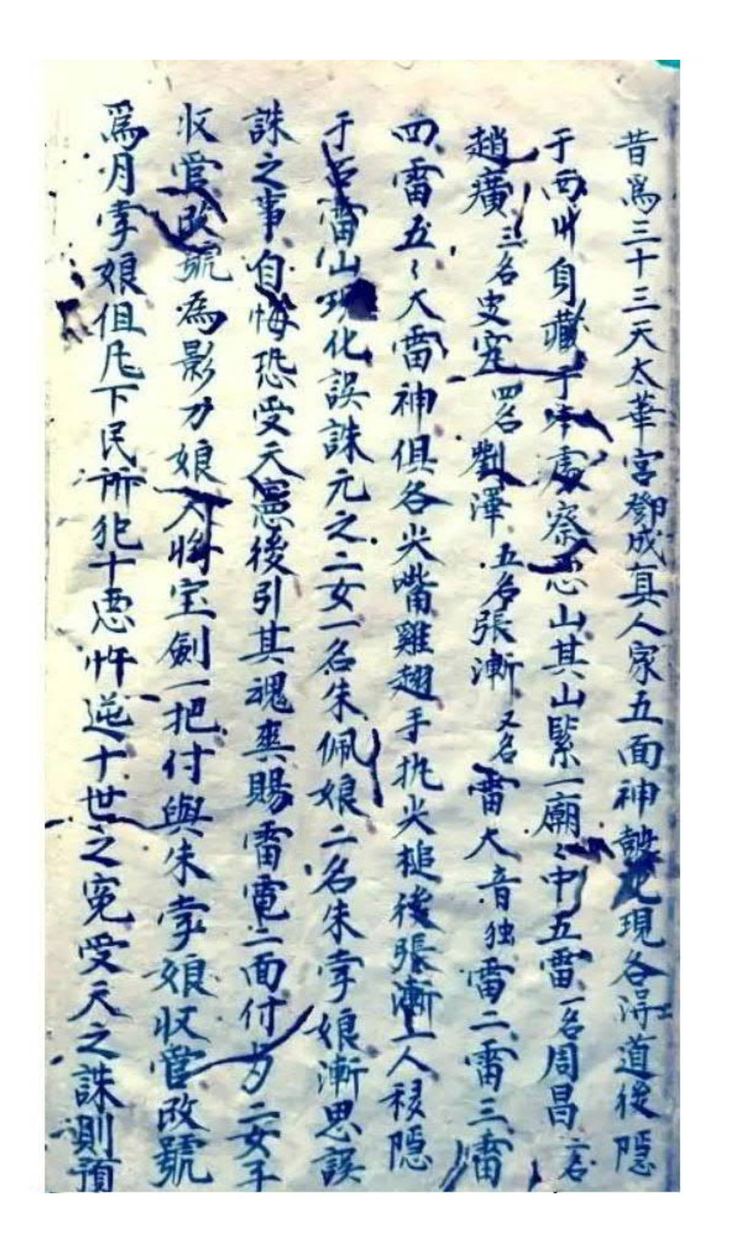 昔為三十三天太華宮鄧成真人家五面神皷化現各淂道後隠
于西川自藏于峰處察悪山其山緊一廟〻中五雷一名周昌二名
趙廣三名史定四名劉澤五名張漸又名雷大音独雷二雷三雷
四雷五〻大雷神俱各尖嘴雞翅手执尖槌後張漸一人移隠
于石雷山現化誤誅元之二女一名朱佩娘二名朱孛娘漸思誤
誅之事自悔恐受天憲後引其魂爽賜雷電二面付为二女子
收管改號為影刀娘入将宝劍一把付與朱孛娘收管改號
為月孛娘但凡下民所犯十悪忤逆十世之冤受天之誅則預